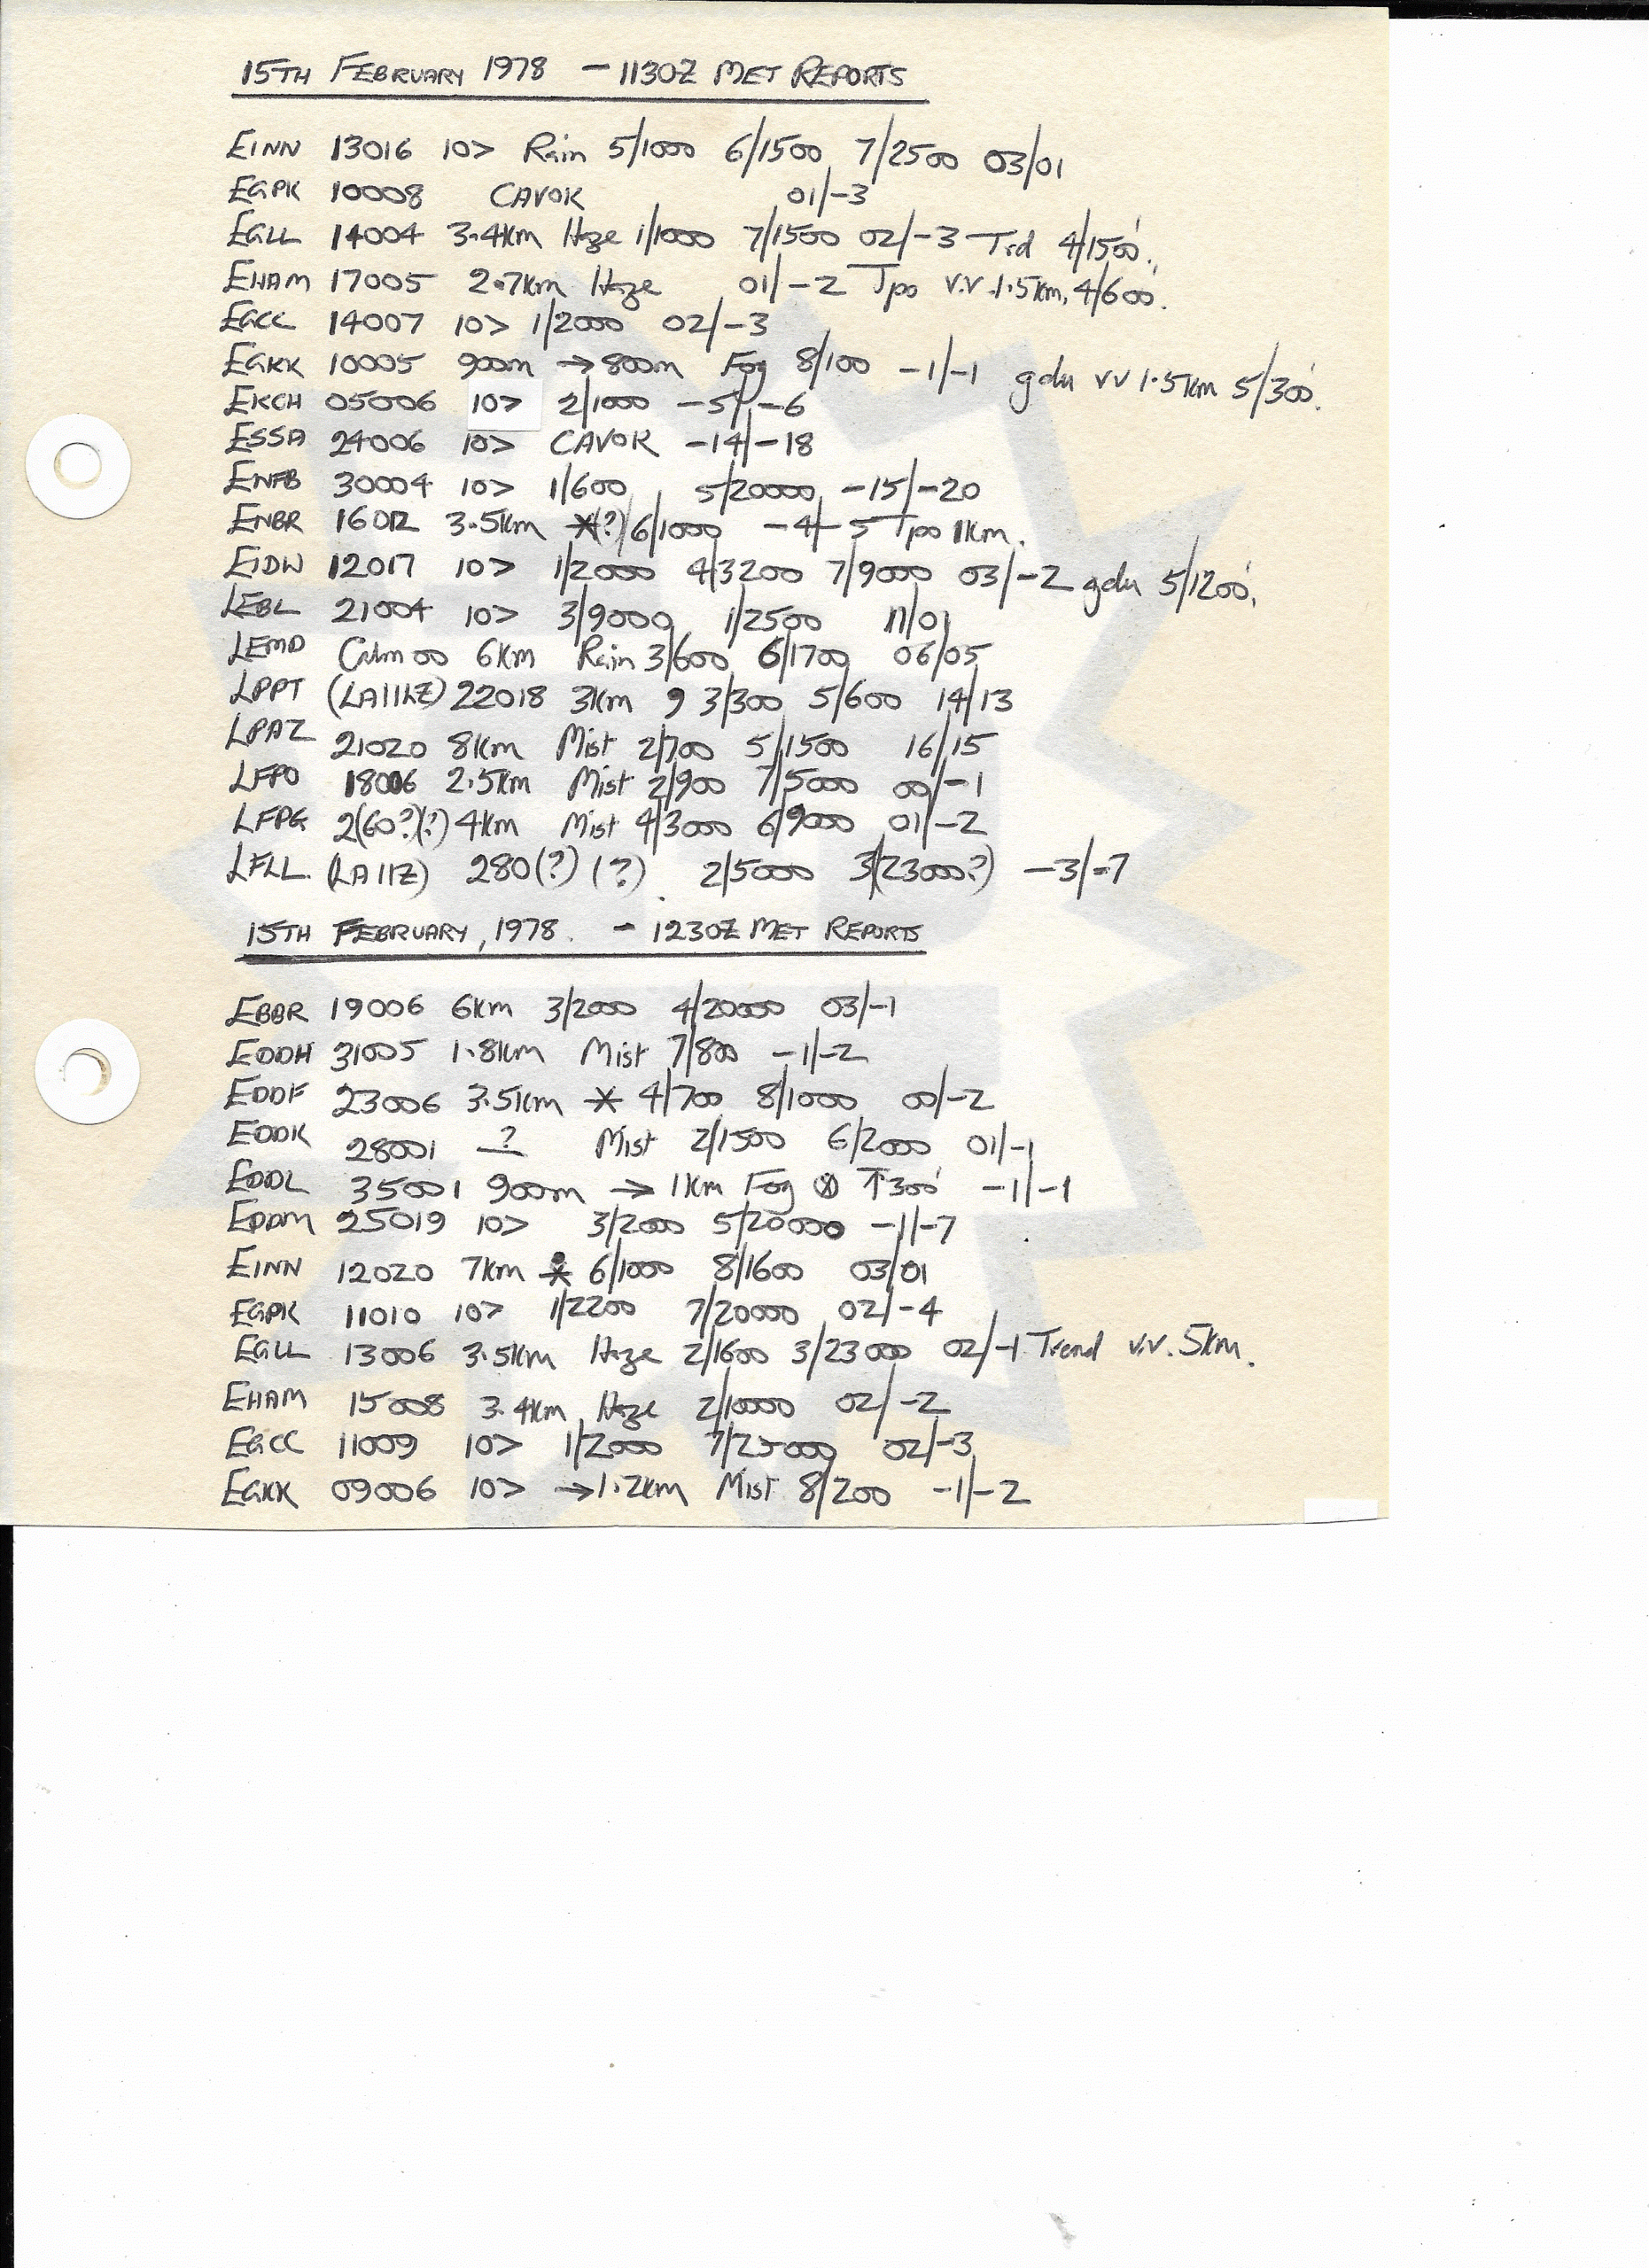 15TH FEBRUARY 1978 - 1130Z MET REPORTS
EINN 13016 10> Rain 5/1000 6/1500 7/2500 03/01
EGPK 10008 CAVOK 01/-3
EGLL 14004 3.4km Haze 1/1000 7/1500 02/-3 Trd 4/1500'.
EHAM 17005 2.7km Haze 01/-2 Tpo V.V. 1.5km, 4/600'.
EGCC 14007 10> 1/2000 02/-3
EGKK 10005 900m → 800m Fog 8/100 -1/-1 gdu VV 1.5km 5/300'.
EKCH 05006 10> 2/1000 -5/-6
ESSA 24006 10> CAVOK -14/-18
ENFB 30004 10> 1/600 5/20000 -15/-20
ENBR 16012 3.5km *(?) 6/1000 -4/-5 Tpo 1km.
EIDW 12017 10> 1/2000 4/3200 7/9000 03/-2 gdu 5/1200'.
LEBL 21004 10> 3/9000 1/2500 11/01
LEMD Calm 00 6km Rain 3/600 6/1700 06/05
LPPT 22018 3km 9 3/300 5/600 14/13
LPAZ 21020 8km Mist 2/700 5/1500 16/15
LFPO 18006 2.5km Mist 2/900 7/5000 00/-1
LFPG 2(60?)(?) 4km Mist 4/3000 6/9000 01/-2
LFLL (LA11Z) 280(?) (?) 2/5000 3(23000?) -3/-7
15TH FEBRUARY, 1978. - 1230Z MET REPORTS
EBBR 19006 6km 3/2000 4/20000 03/-1
EDDH 31005 1.8km Mist 7/800 -1/-2
EDDF 23006 3.5km * 4/700 8/1000 00/-2
EDDK 28001 ? Mist 2/1500 6/2000 01/-1
EDDL 35001 900m → 1km Fog ⊗ ↑300' -1/-1
EDDM 25019 10> 3/2000 5/20000 -1/-7
EINN 12020 7km * 6/1000 8/1600 03/01
EGPK 11010 10> 1/2200 7/20000 02/-4
EGLL 13006 3.5km Haze 2/1600 3/23000 02/-1 Trend V.V. 5km.
EHAM 15008 3.4km Haze 2/10000 02/-2
EGCC 11009 10> 1/2000 7/25000 02/-3
EGKK 09006 10> → 1.2km Mist 8/200 -1/-2